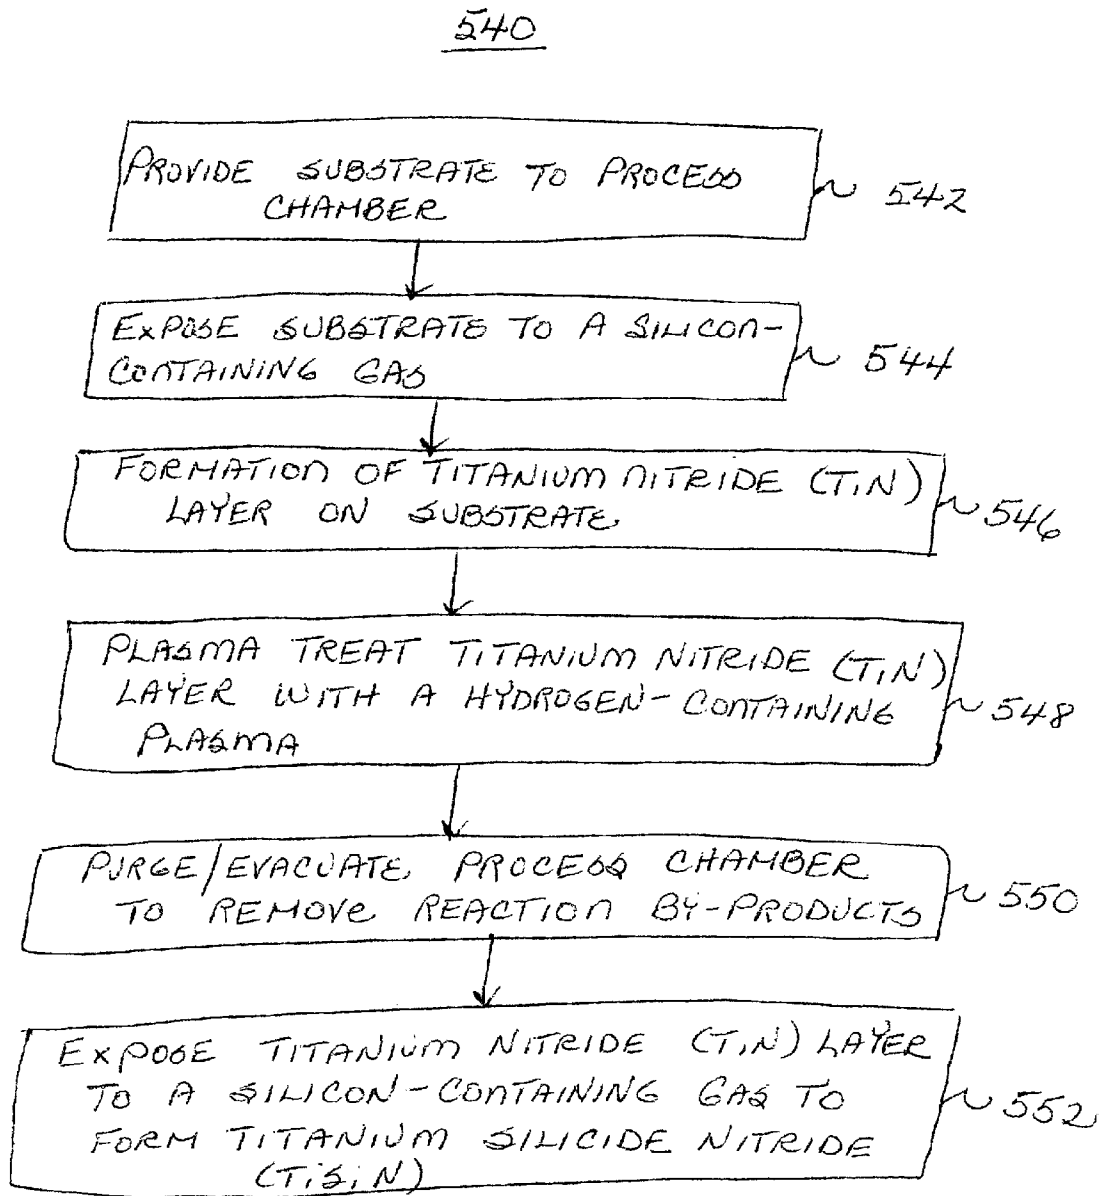 540
PROVIDE SUBSTRATE TO PROCESS
CHAMBER
542
EXPOSE SUBSTRATE TO A SILICON-
CONTAINING GAS
544
FORMATION OF TITANIUM NITRIDE (TiN)
LAYER ON SUBSTRATE
546
PLASMA TREAT TITANIUM NITRIDE (TiN)
LAYER WITH A HYDROGEN-CONTAINING
PLASMA
548
PURGE/EVACUATE PROCESS CHAMBER
TO REMOVE REACTION BY-PRODUCTS
550
EXPOSE TITANIUM NITRIDE (TiN) LAYER
TO A SILICON-CONTAINING GAS TO
FORM TITANIUM SILICIDE NITRIDE
(TiSiN)
552